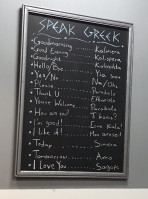 SPEAK GREEK
Goodmorning ..... Kalimera
Good Evening ..... Kalispera
Goodnight ..... Kalinihta
Hello/Bye ..... Yia sou
Yes/No ..... Ne/Ohi
Please ..... Parakalo
Thank U ..... Efharisto
You're Welcome .. Parakalo
How are you? ..... Ti kanis?
I'm good! ..... Eime Kala!
I like it! ..... Mou aresei!
Today ..... Simera
Tomorrow ..... Avrio
I Love You ..... Sagapo